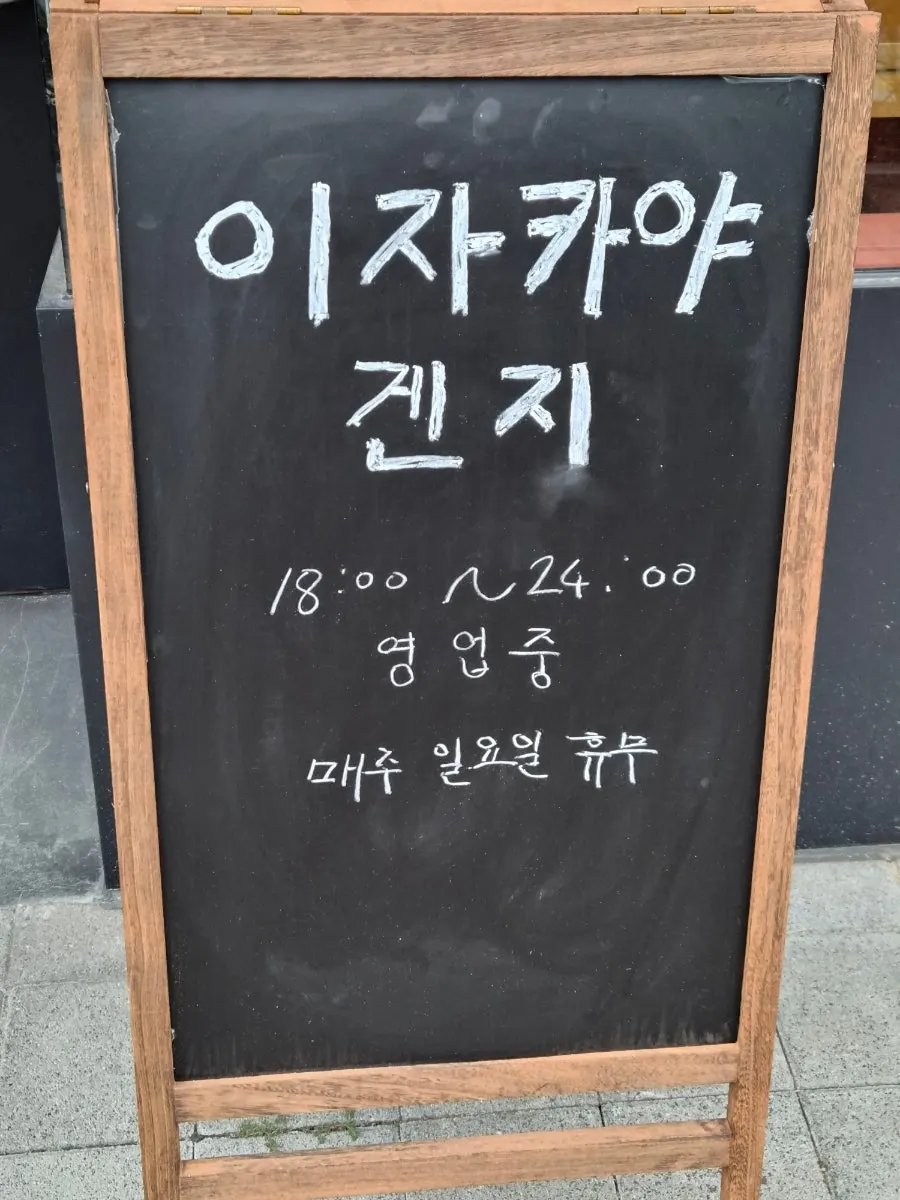 이자카야
겐지
18:00 ~ 24:00
영업중
매주 일요일 휴무